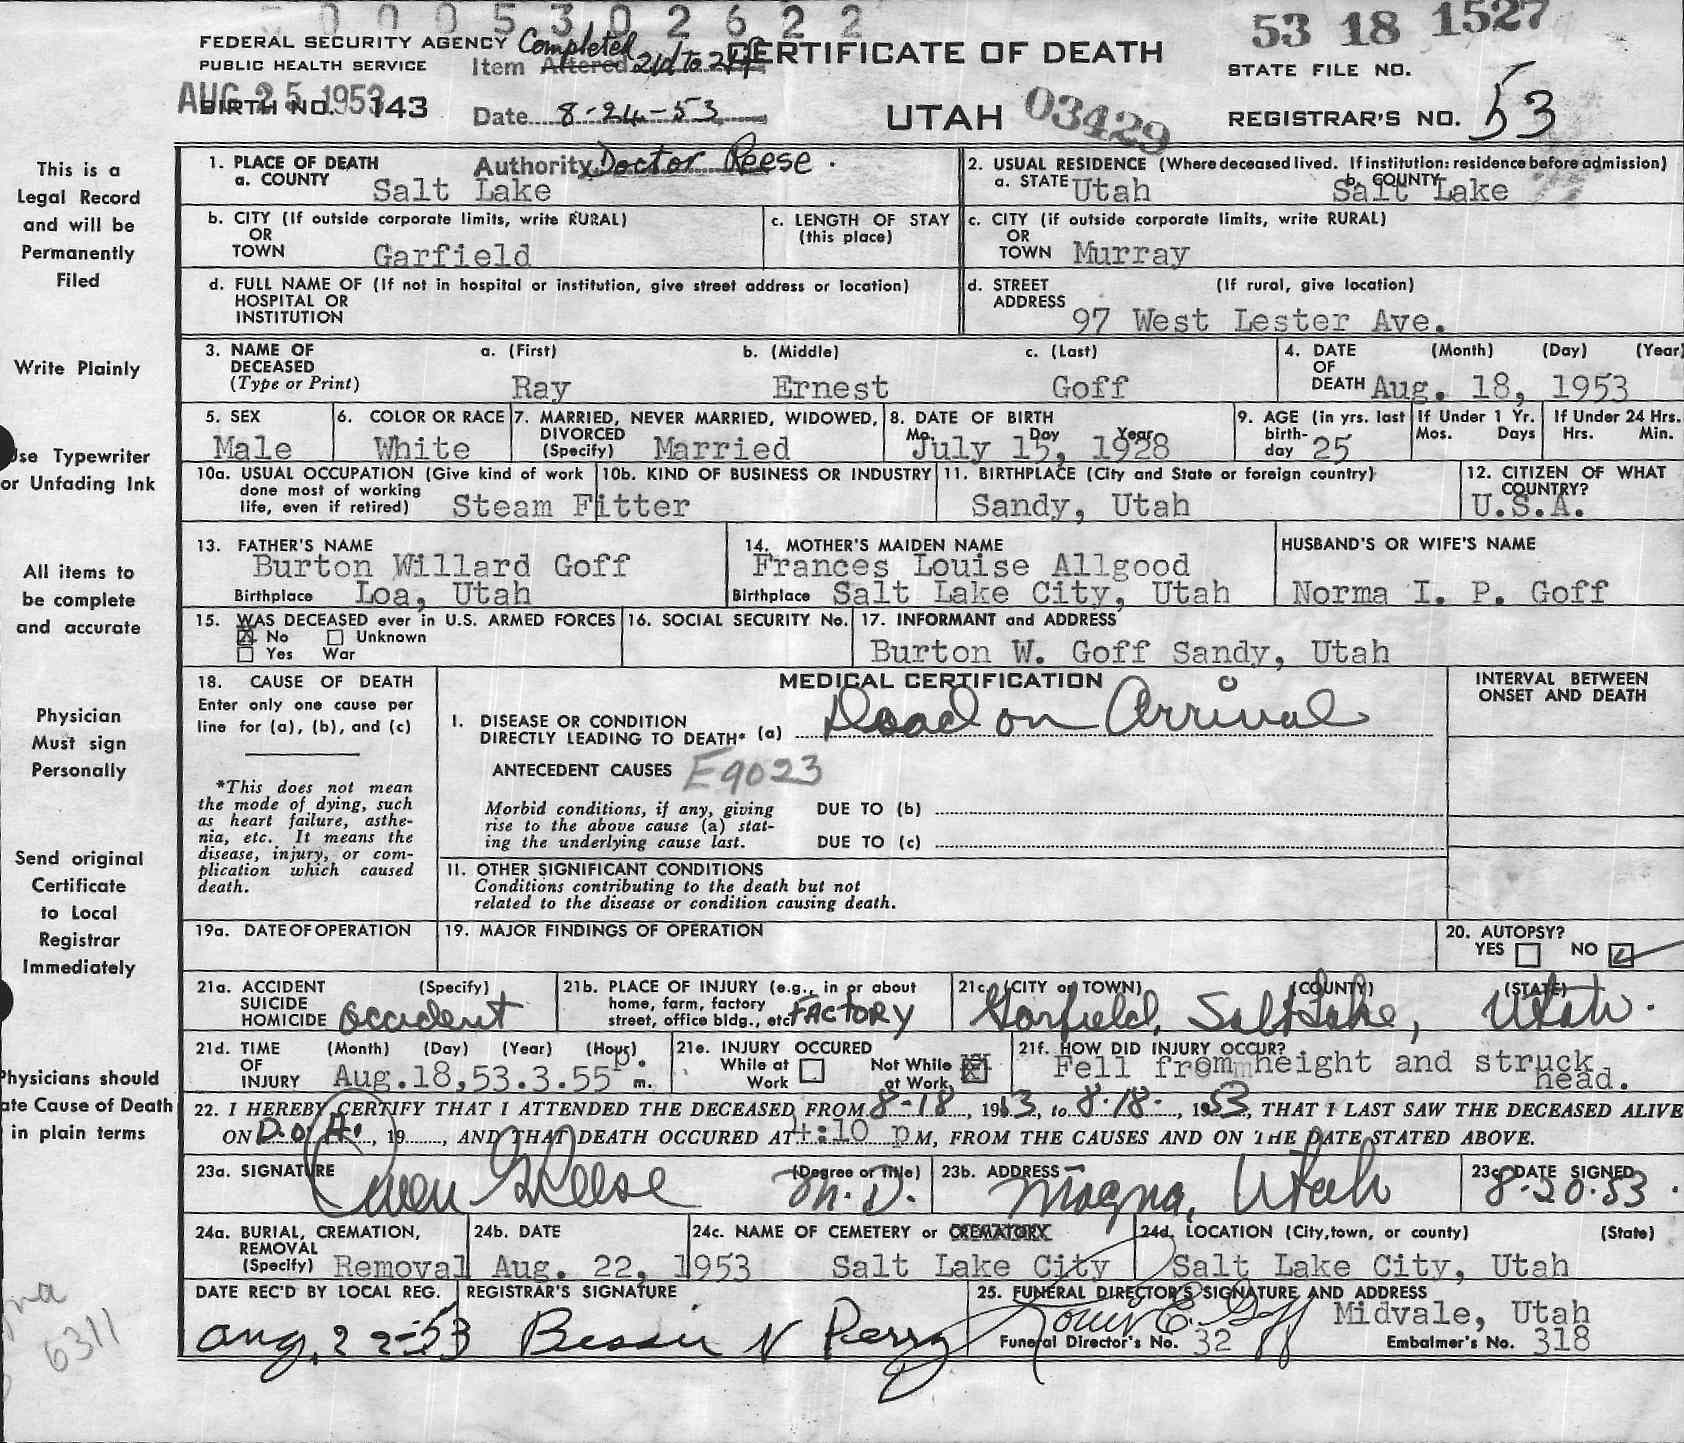 0005302622
53 18 1527
FEDERAL SECURITY AGENCY Completed CERTIFICATE OF DEATH
PUBLIC HEALTH SERVICE Item Altered 21d to 21f STATE FILE NO.
AUG 25 1953
BIRTH NO. 143 Date 8-24-53 UTAH 03429 REGISTRAR'S NO. 53
This is a
Legal Record
and will be
Permanently
Filed
Write Plainly
Use Typewriter
or Unfading Ink
All items to
be complete
and accurate
Physician
Must sign
Personally
Send original
Certificate
to Local
Registrar
Immediately
Physicians should
ate Cause of Death
in plain terms
6311
1. PLACE OF DEATH Authority Doctor Reese.
a. COUNTY Salt Lake
2. USUAL RESIDENCE (Where deceased lived. If institution: residence before admission)
a. STATE Utah b. COUNTY Salt Lake
b. CITY (If outside corporate limits, write RURAL)
OR
TOWN Garfield
c. LENGTH OF STAY
(this place)
c. CITY (if outside corporate limits, write RURAL)
OR
TOWN Murray
d. FULL NAME OF (If not in hospital or institution, give street address or location)
HOSPITAL OR
INSTITUTION
d. STREET (If rural, give location)
ADDRESS
97 West Lester Ave.
3. NAME OF a. (First) b. (Middle) c. (Last)
DECEASED
(Type or Print) Ray Ernest Goff
4. DATE (Month) (Day) (Year)
OF
DEATH Aug. 18, 1953
5. SEX
Male
6. COLOR OR RACE
White
7. MARRIED, NEVER MARRIED, WIDOWED,
DIVORCED
(Specify) Married
8. DATE OF BIRTH
Mo. Day Year
July 15, 1928
9. AGE (in yrs. last
birth-
day 25
If Under 1 Yr.
Mos. Days
If Under 24 Hrs.
Hrs. Min.
10a. USUAL OCCUPATION (Give kind of work
done most of working
life, even if retired) Steam Fitter
10b. KIND OF BUSINESS OR INDUSTRY
11. BIRTHPLACE (City and State or foreign country)
Sandy, Utah
12. CITIZEN OF WHAT
COUNTRY?
U.S.A.
13. FATHER'S NAME
Burton Willard Goff
Birthplace Loa, Utah
14. MOTHER'S MAIDEN NAME
Frances Louise Allgood
Birthplace Salt Lake City, Utah
HUSBAND'S OR WIFE'S NAME
Norma I. P. Goff
15. WAS DECEASED ever in U.S. ARMED FORCES
No Unknown
Yes War
16. SOCIAL SECURITY No.
17. INFORMANT and ADDRESS
Burton W. Goff Sandy, Utah
18. CAUSE OF DEATH
Enter only one cause per
line for (a), (b), and (c)
*This does not mean
the mode of dying, such
as heart failure, asthe-
nia, etc. It means the
disease, injury, or com-
plication which caused
death.
MEDICAL CERTIFICATION
INTERVAL BETWEEN
ONSET AND DEATH
I. DISEASE OR CONDITION
DIRECTLY LEADING TO DEATH* (a) Dead on Arrival
ANTECEDENT CAUSES E9023
Morbid conditions, if any, giving DUE TO (b)
rise to the above cause (a) stat-
ing the underlying cause last. DUE TO (c)
II. OTHER SIGNIFICANT CONDITIONS
Conditions contributing to the death but not
related to the disease or condition causing death.
19a. DATE OF OPERATION
19. MAJOR FINDINGS OF OPERATION
20. AUTOPSY?
YES NO
21a. ACCIDENT (Specify)
SUICIDE
HOMICIDE accident
21b. PLACE OF INJURY (e.g., in or about
home, farm, factory
street, office bldg., etc. FACTORY
21c. (CITY or TOWN) (COUNTY) (STATE)
Garfield, Salt Lake, Utah.
21d. TIME (Month) (Day) (Year) (Hour)
OF
INJURY Aug.18,53.3.55 p. m.
21e. INJURY OCCURED
While at Not While
Work at Work
21f. HOW DID INJURY OCCUR?
Fell from height and struck
head.
22. I HEREBY CERTIFY THAT I ATTENDED THE DECEASED FROM 8-18, 1953, to 8-18-, 1953, THAT I LAST SAW THE DECEASED ALIVE
ON D.O.A., 19, AND THAT DEATH OCCURED AT 4:10 p M, FROM THE CAUSES AND ON THE DATE STATED ABOVE.
23a. SIGNATURE (Degree or title)
Owen G Reese M.D.
23b. ADDRESS
Magna, Utah
23c. DATE SIGNED
8-20-53.
24a. BURIAL, CREMATION,
REMOVAL
(Specify) Removal
24b. DATE
Aug. 22, 1953
24c. NAME OF CEMETERY or CREMATORY
Salt Lake City
24d. LOCATION (City, town, or county) (State)
Salt Lake City, Utah
DATE REC'D BY LOCAL REG.
Aug. 22-53
REGISTRAR'S SIGNATURE
Bessie N Perry
25. FUNERAL DIRECTOR'S SIGNATURE AND ADDRESS
Louis E. Goff Midvale, Utah
Funeral Director's No. 32 Embalmer's No. 318